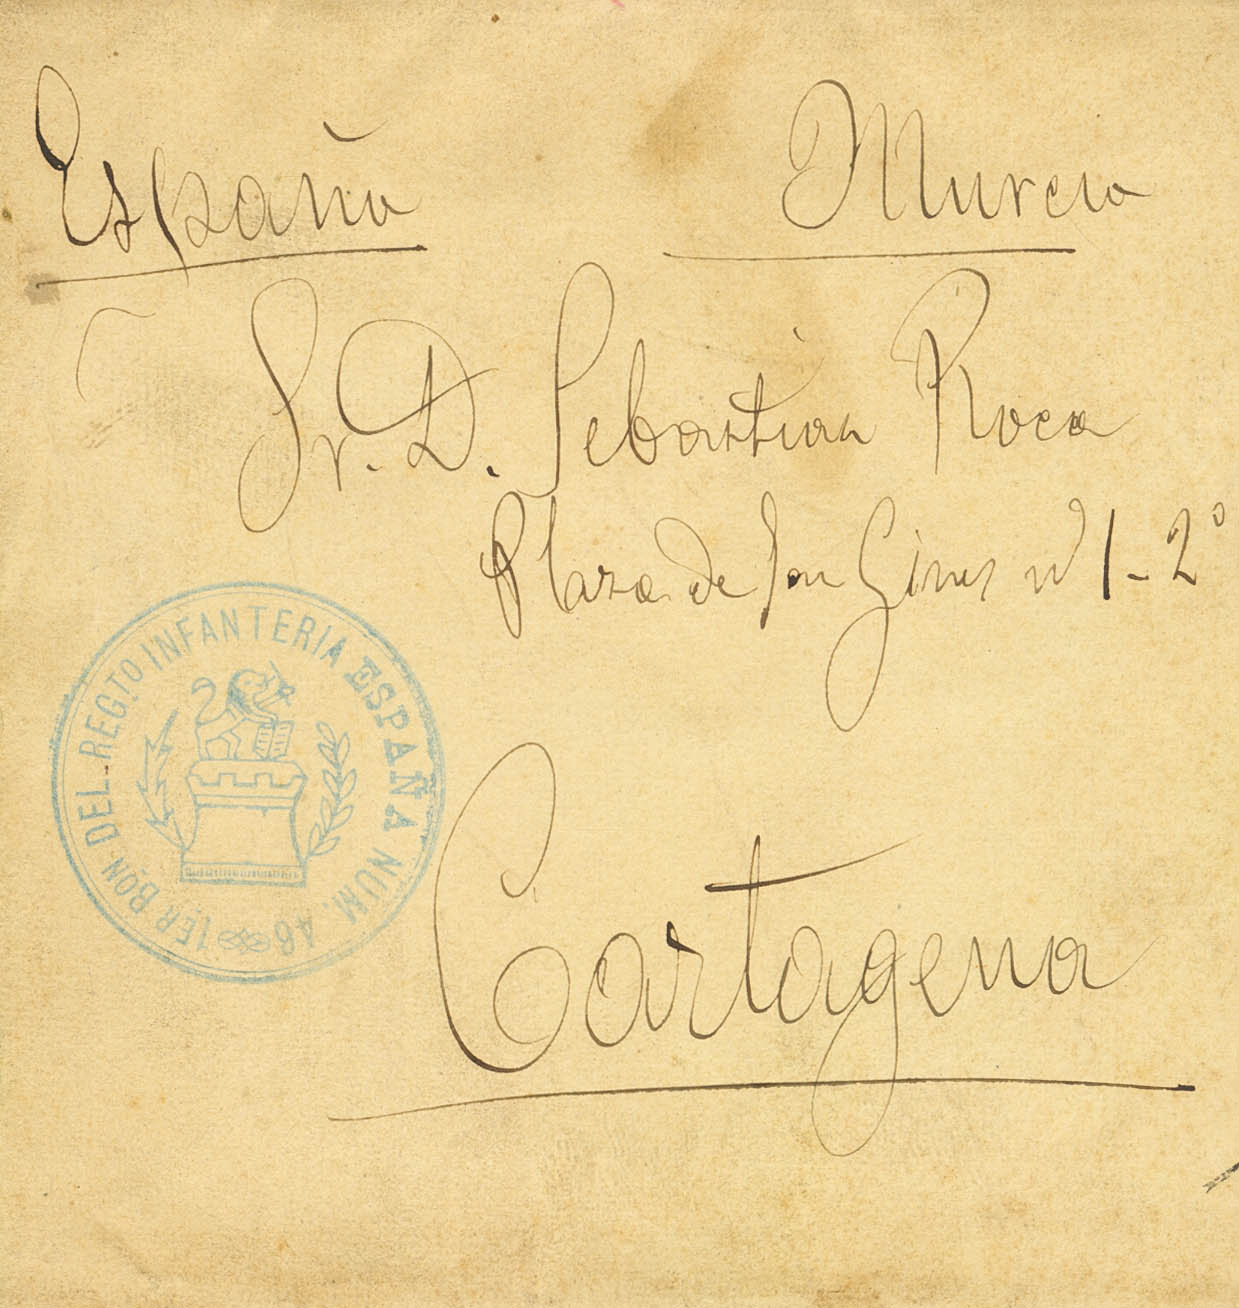 España Murcia
Sr. D. Sebastian Roca
Plaza de San Gines nº 1-2º
1ER BON DEL REGTO INFANTERIA ESPAÑA NUM. 46
Cartagena